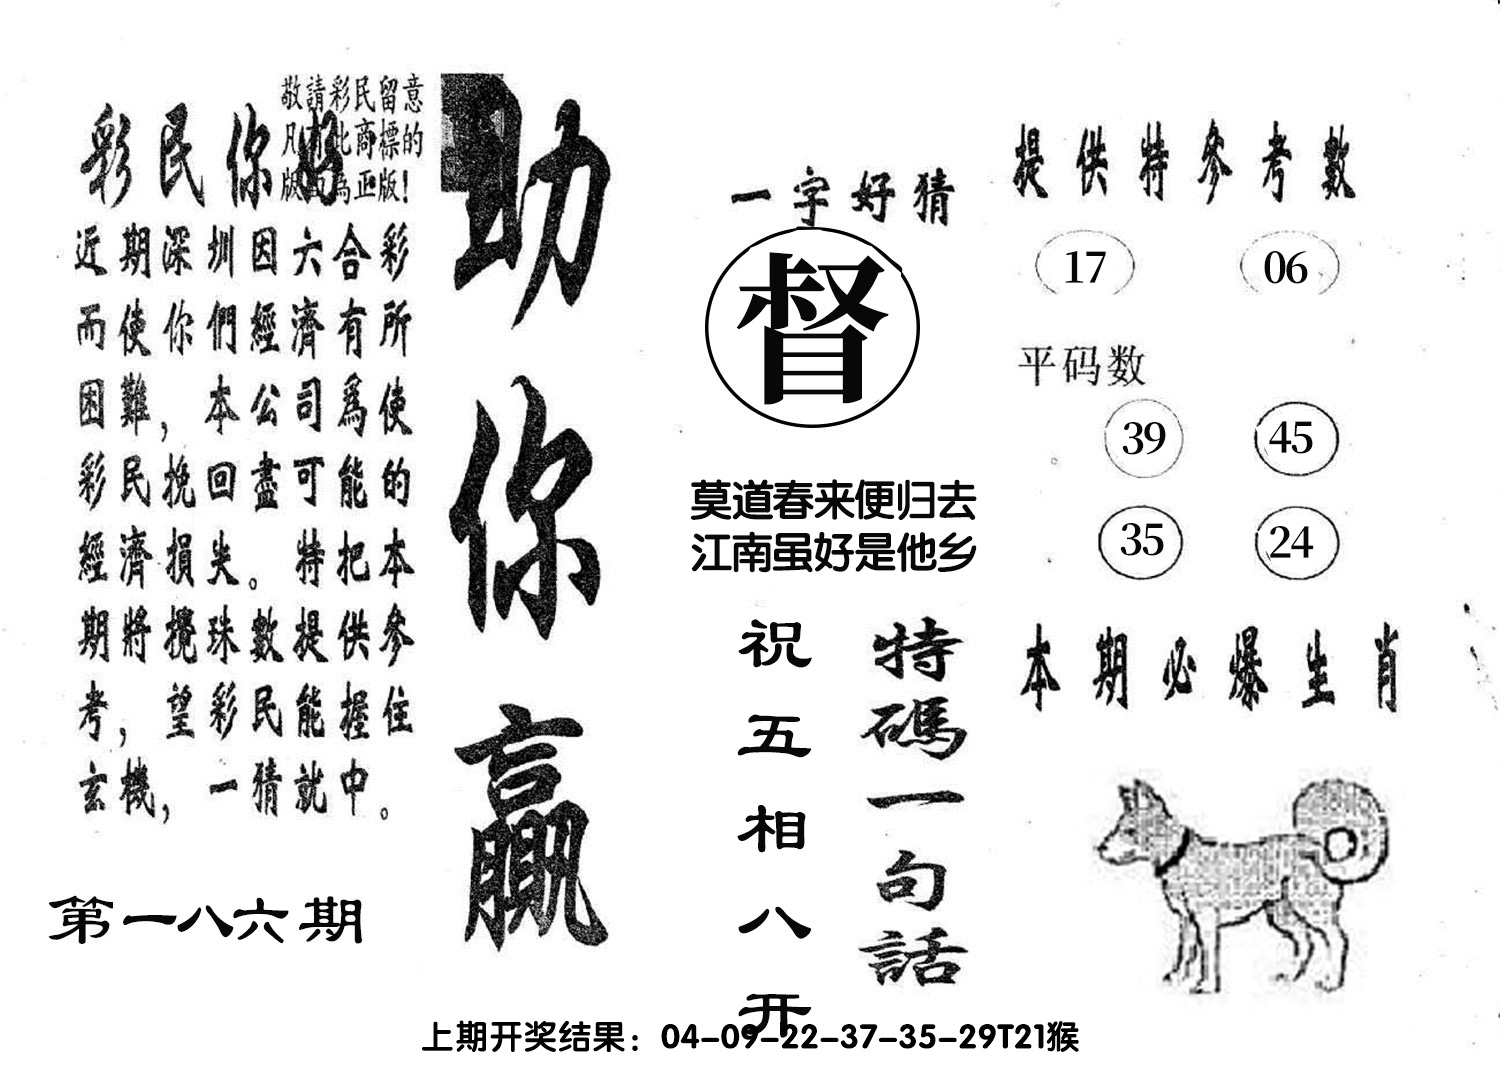 敬請彩民留意
凡有此商標的
版面為正版!
彩民你好
近期深圳因六合彩
而使你們經濟有所
困難，本公司爲使
彩民挽回盡可能的
經濟損失。特把本
期將攪珠數提供參
考，望彩民能握住
玄機，一猜就中。
第一八六期
助你贏
一字好猜
督
莫道春来便归去
江南虽好是他乡
特碼一句話
祝五相八开
提供特參考數
17 06
平码数
39 45
35 24
本期必爆生肖
上期开奖结果：04-09-22-37-35-29T21猴